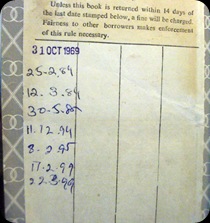 Unless this book is returned within 14 days of
the last date stamped below, a fine will be charged.
Fairness to other borrowers makes enforcement
of this rule necessary.
31 OCT 1969
25-2.84
12.3.84
30.5.85
11.12.94
8-2.95
17.2.99
22.3.99